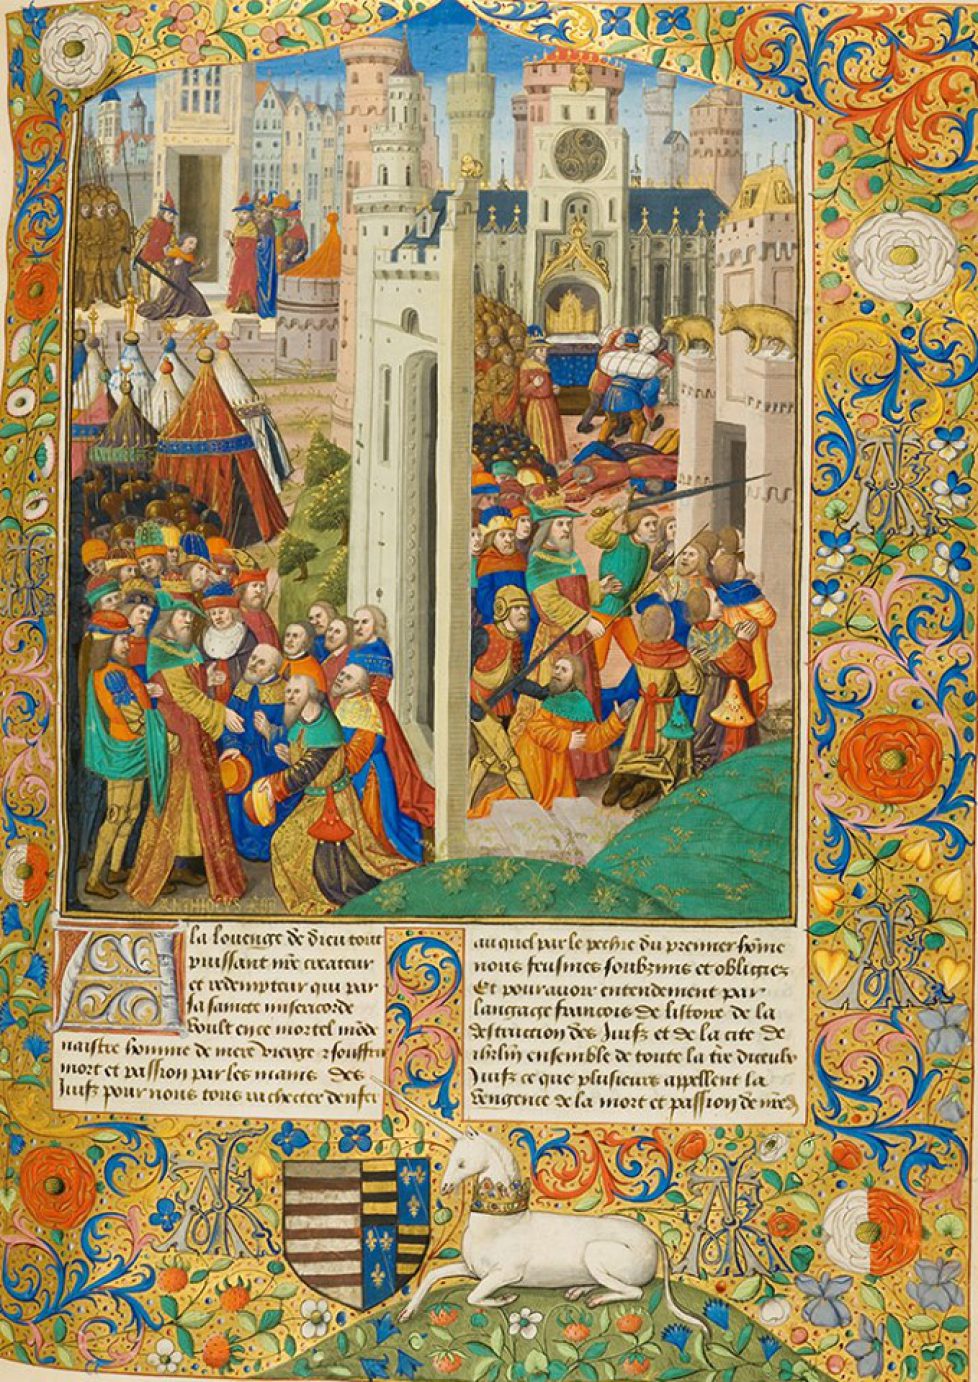 A la louenge de dieu tout
puissant nre createur
et redempteur qui par
sa saincte misericorde
voult en ce mortel mode
naistre homme de mere vierge z souffrir
mort et passion par les mains des
Juifz pour nous tous rachecter denfer
au quel par le peche du premier home
nous feusmes soubzmis et obligiez
Et pour avoir entendement par
langage francois de listoire de la
destruction des Juifz et de la cite de
ihrlm ensemble de toute la tre diceulx
Juifz ce que plusieurs appellent la
vengence de la mort et passion de nre s